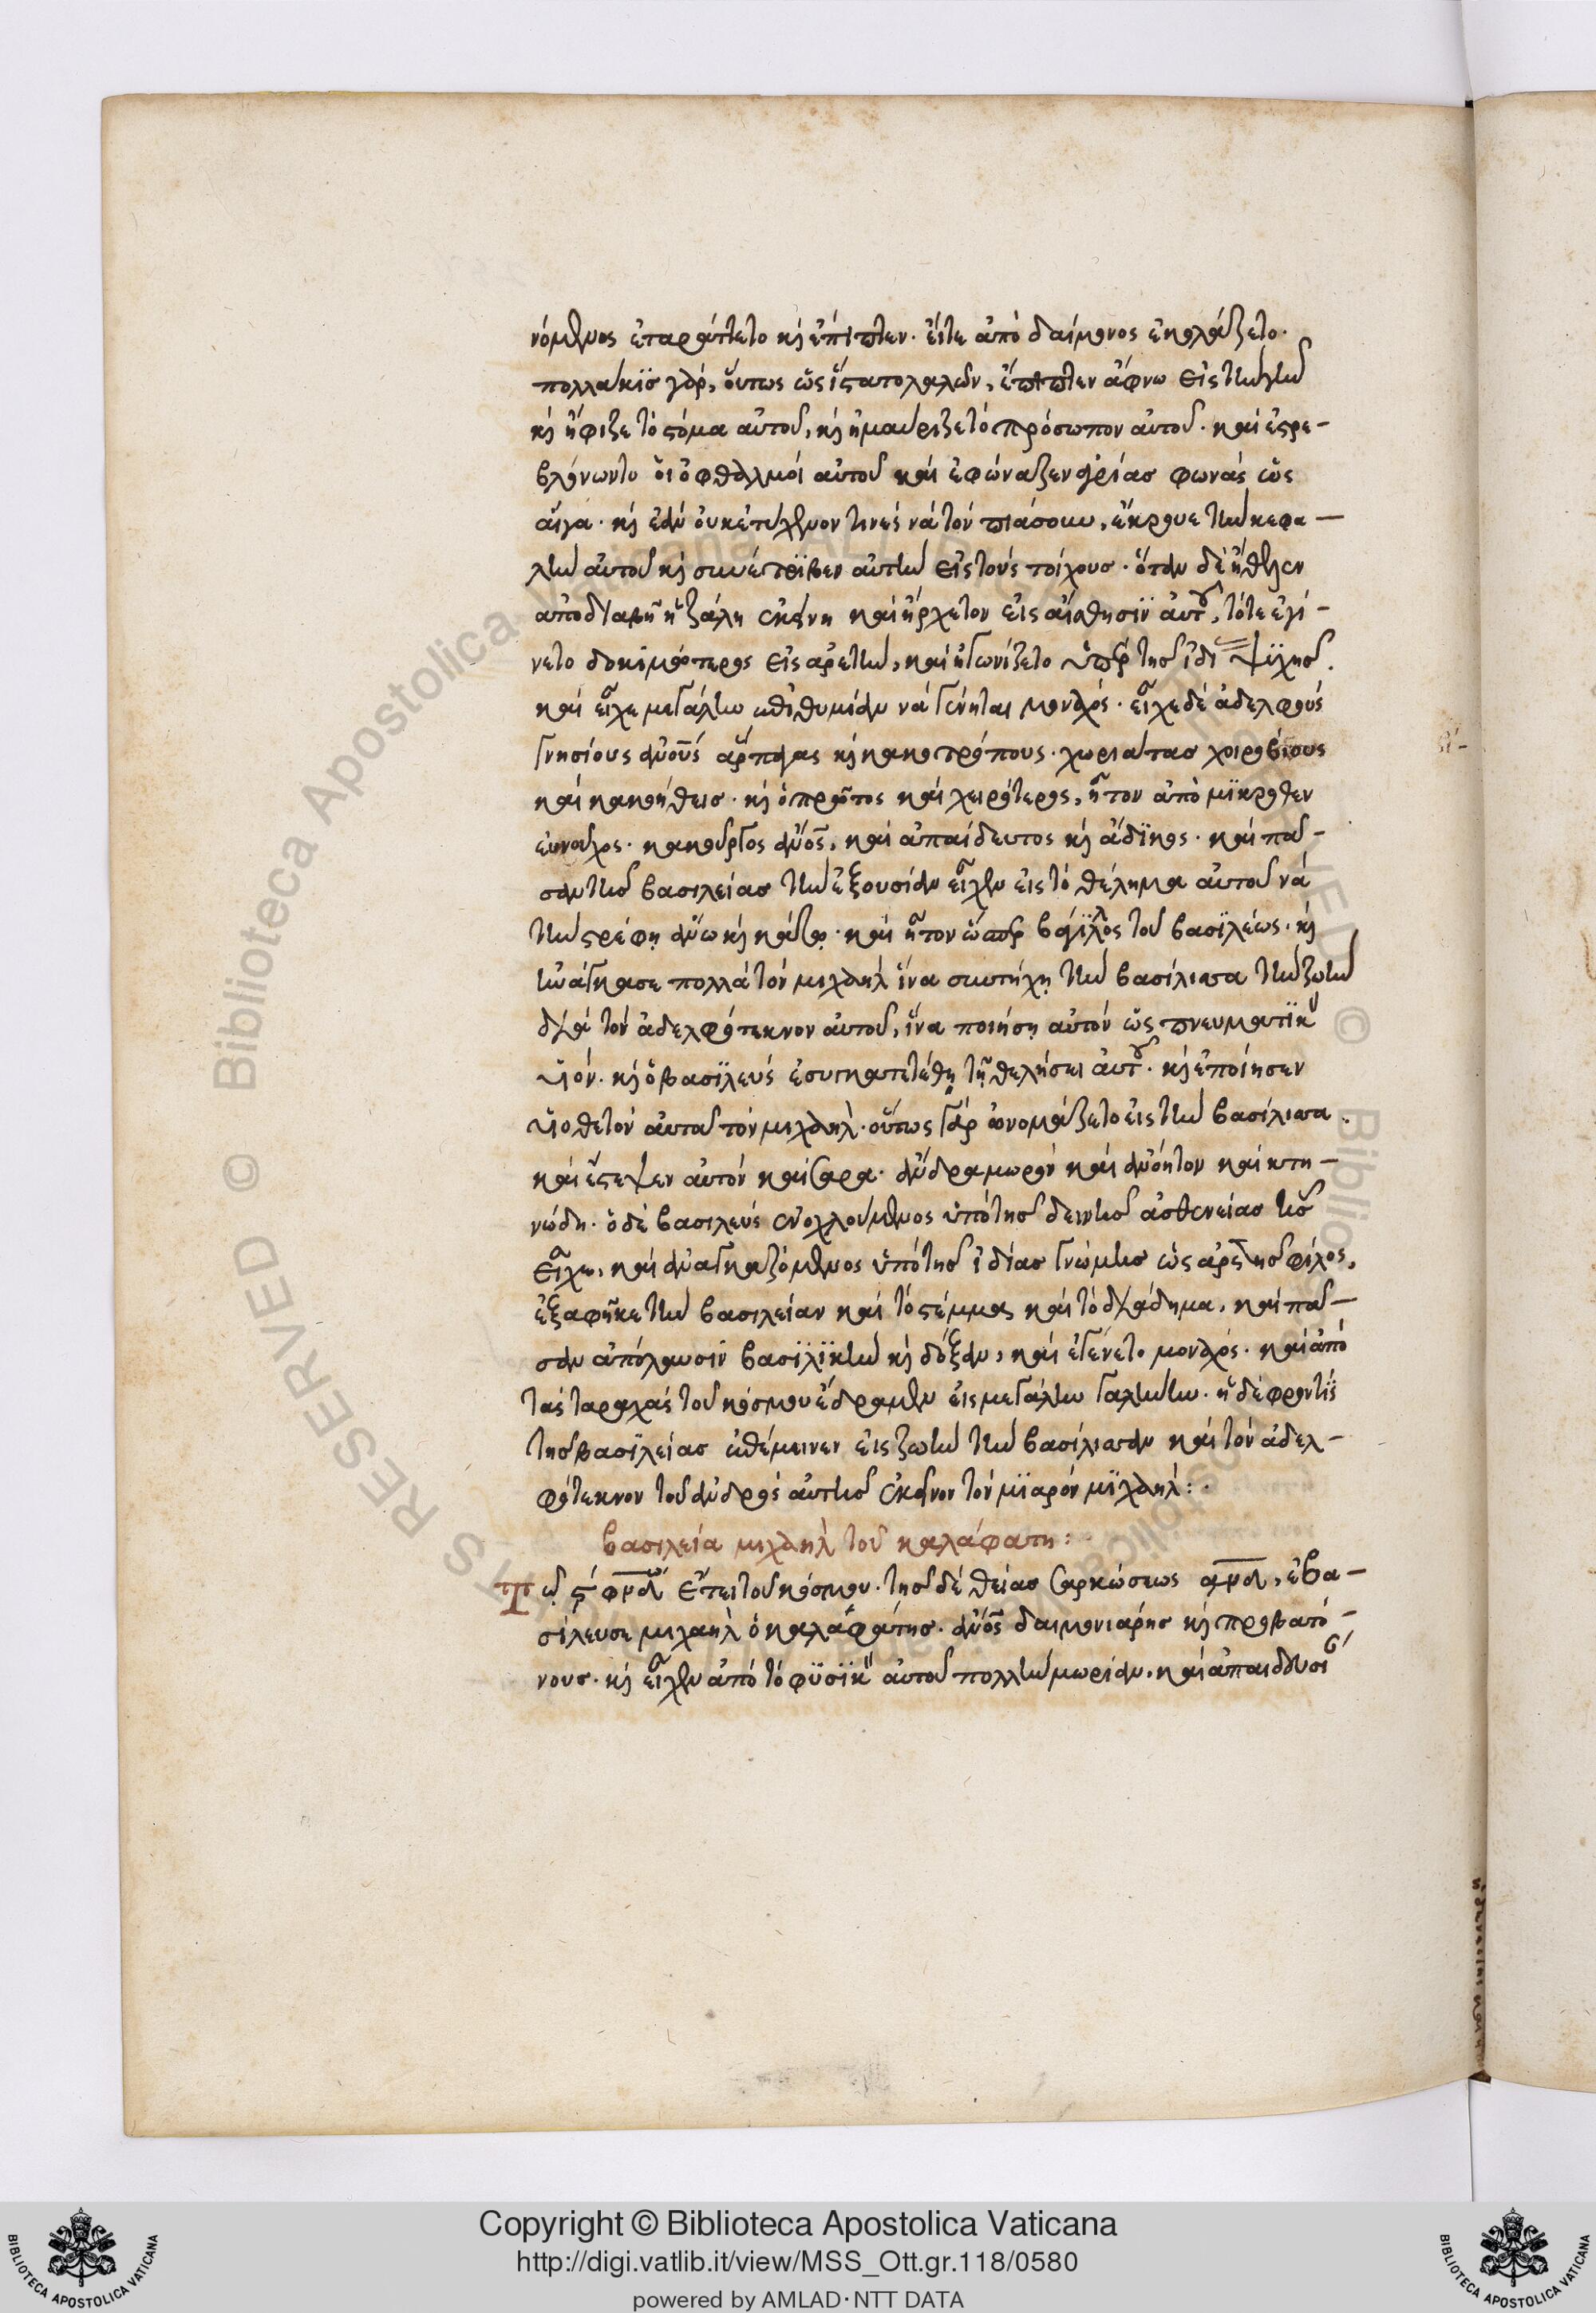 νόμενος ἐταράττετο κὶ ἐπίπτεν. εἴτε ἀπὸ δαίμονος ἐκολάζετο.
πολλακϊσ γὰρ, οὕτως ὡς ἵστατο λαλῶν, ἔπιπτεν ἄφνω εἰς τὴν γῆν
κὶ ἤφριζε τὸ στόμα αὐτοῦ, κὶ ἠμαύριζε τὸ πρόσωπον αὐτοῦ. καὶ ἐστρε-
βλόνωντο ὁι ὀφθαλμοὶ αὐτοῦ καὶ ἐφώναζεν ἀγρίασ φωνάς ὡς
αἶγα. κὶ ἐὰν οὐκ ἐπύχενον τινές νὰ τὸν πιάσουν, ἔκρουε τὴν κεφα-
λὴν αὐτοῦ κὶ συνέτρϊβεν αὐτὴν εἰς τοὺς τοίχουσ. ὅταν δὲ ἤθελεν
ἀποδιαβῆ ἡ ζάλη ἐκείνη καὶ ἤρχετον εἰς αἴσθησϊν αὐτοῦ, τότε ἐγί-
νετο δοκιμώτερος εἰς ἀρετὴν, καὶ ἠγωνίζετο ὑπὲρ τῆσ ἰδί ψϋχῆσ.
καὶ εἶχε μεγάλην ἐπιθυμίαν νὰ γένηται μοναχός. εἶχε δὲ ἀδελφούς
γνησίους ἀνοὺς ἅρπαγας κὶ κακοτρόπους. χωριάτασ χοιροβίους
καὶ κακοήθεισ. κὶ ὁ πρῶτος καὶ χειρότερος, ἦτον ἀπὸ μϊκρόθεν
εὐνοῦχος. κακοῦργος ἀνος, καὶ ἀπαίδευτος κὶ ἄδϊκος. καὶ πᾶ-
σαν τῆσ βασιλείασ τὴν ἐξουσίαν εἶχεν εἰς τὸ θέλημα αὐτοῦ νὰ
τὴν στρέφη ἄνω κὶ κάτω. καὶ ἦτον ὥσπερ βάϊλος τοῦ βασϊλέως. κὶ
ἠνάγκασε πολλὰ τὸν μιχαὴλ ἵνα συντύχη τὴν βασίλισσα τὴν ζωὴν
διὰ τὸν ἀδελφότεκνον αὐτοῦ, ἵνα ποιήση αὐτὸν ὡς πνευματϊκὸν
υἱόν. κὶ ὁ βασϊλεὺς ἐσυγκατετέθη τῆ θελήσει αὐτοῦ. κὶ ἐποίησεν
υἱοθετὸν αὐτοῦ τὸν μιχαὴλ. οὕτως γὰρ ὠνομάζετο εἰς τὴν βασίλισσα.
καὶ ἔστεψεν αὐτὸν καίσαρα. ἄνδρα μωρὸν καὶ ἀνόητον καὶ κτη-
νώδη. ὁ δὲ βασιλεὺς ἐνοχλούμενος ὑπὸ τῆσ δεινῆσ ἀσθενείασ ἧσ
εἶχεν, καὶ ἀναγκαζόμενος ὑπὸ τῆσ ἰδίασ γνώμησ ὡς ἀρετῆσ φίλος,
ἐξαφῆκε τὴν βασιλείαν καὶ τὸ στέμμα καὶ τὸ διάδημα, καὶ πᾶ-
σαν ἀπόλαυσϊν βασϊλϊκὴν κὶ δόξαν, καὶ ἐγένετο μοναχός. καὶ ἀπὸ
τὰς ταραχὰς τοῦ κόσμου ἔδραμεν εἰς μεγάλην γαλήνην. ἡ δὲ φροντὶς
τῆσ βασϊλείασ ἀπέμεινεν εἰς ζωὴν τὴν βασίλισσαν καὶ τὸν ἀδελ-
φότεκνον τοῦ ἀνδρὸς αὐτῆσ ἐκεῖνον τὸν μϊαρὸν μϊχαὴλ:.
βασιλεία μιχαὴλ τοῦ καλάφατη:
Τῶ ϛφνδω ἔτει τοῦ κόσμου. τῆσ δὲ θείασ σαρκώσεως αμδ, ἐβα-
σίλευσε μιχαὴλ ὁ καλαφάτησ. ἀνος δαιμονιάρησ κὶ προβατό-
νουσ. κὶ εἶχεν ἀπὸ τὸ φϋσϊκὸν αὐτοῦ πολλὴν μωρίαν. καὶ ἀπαιδευσί